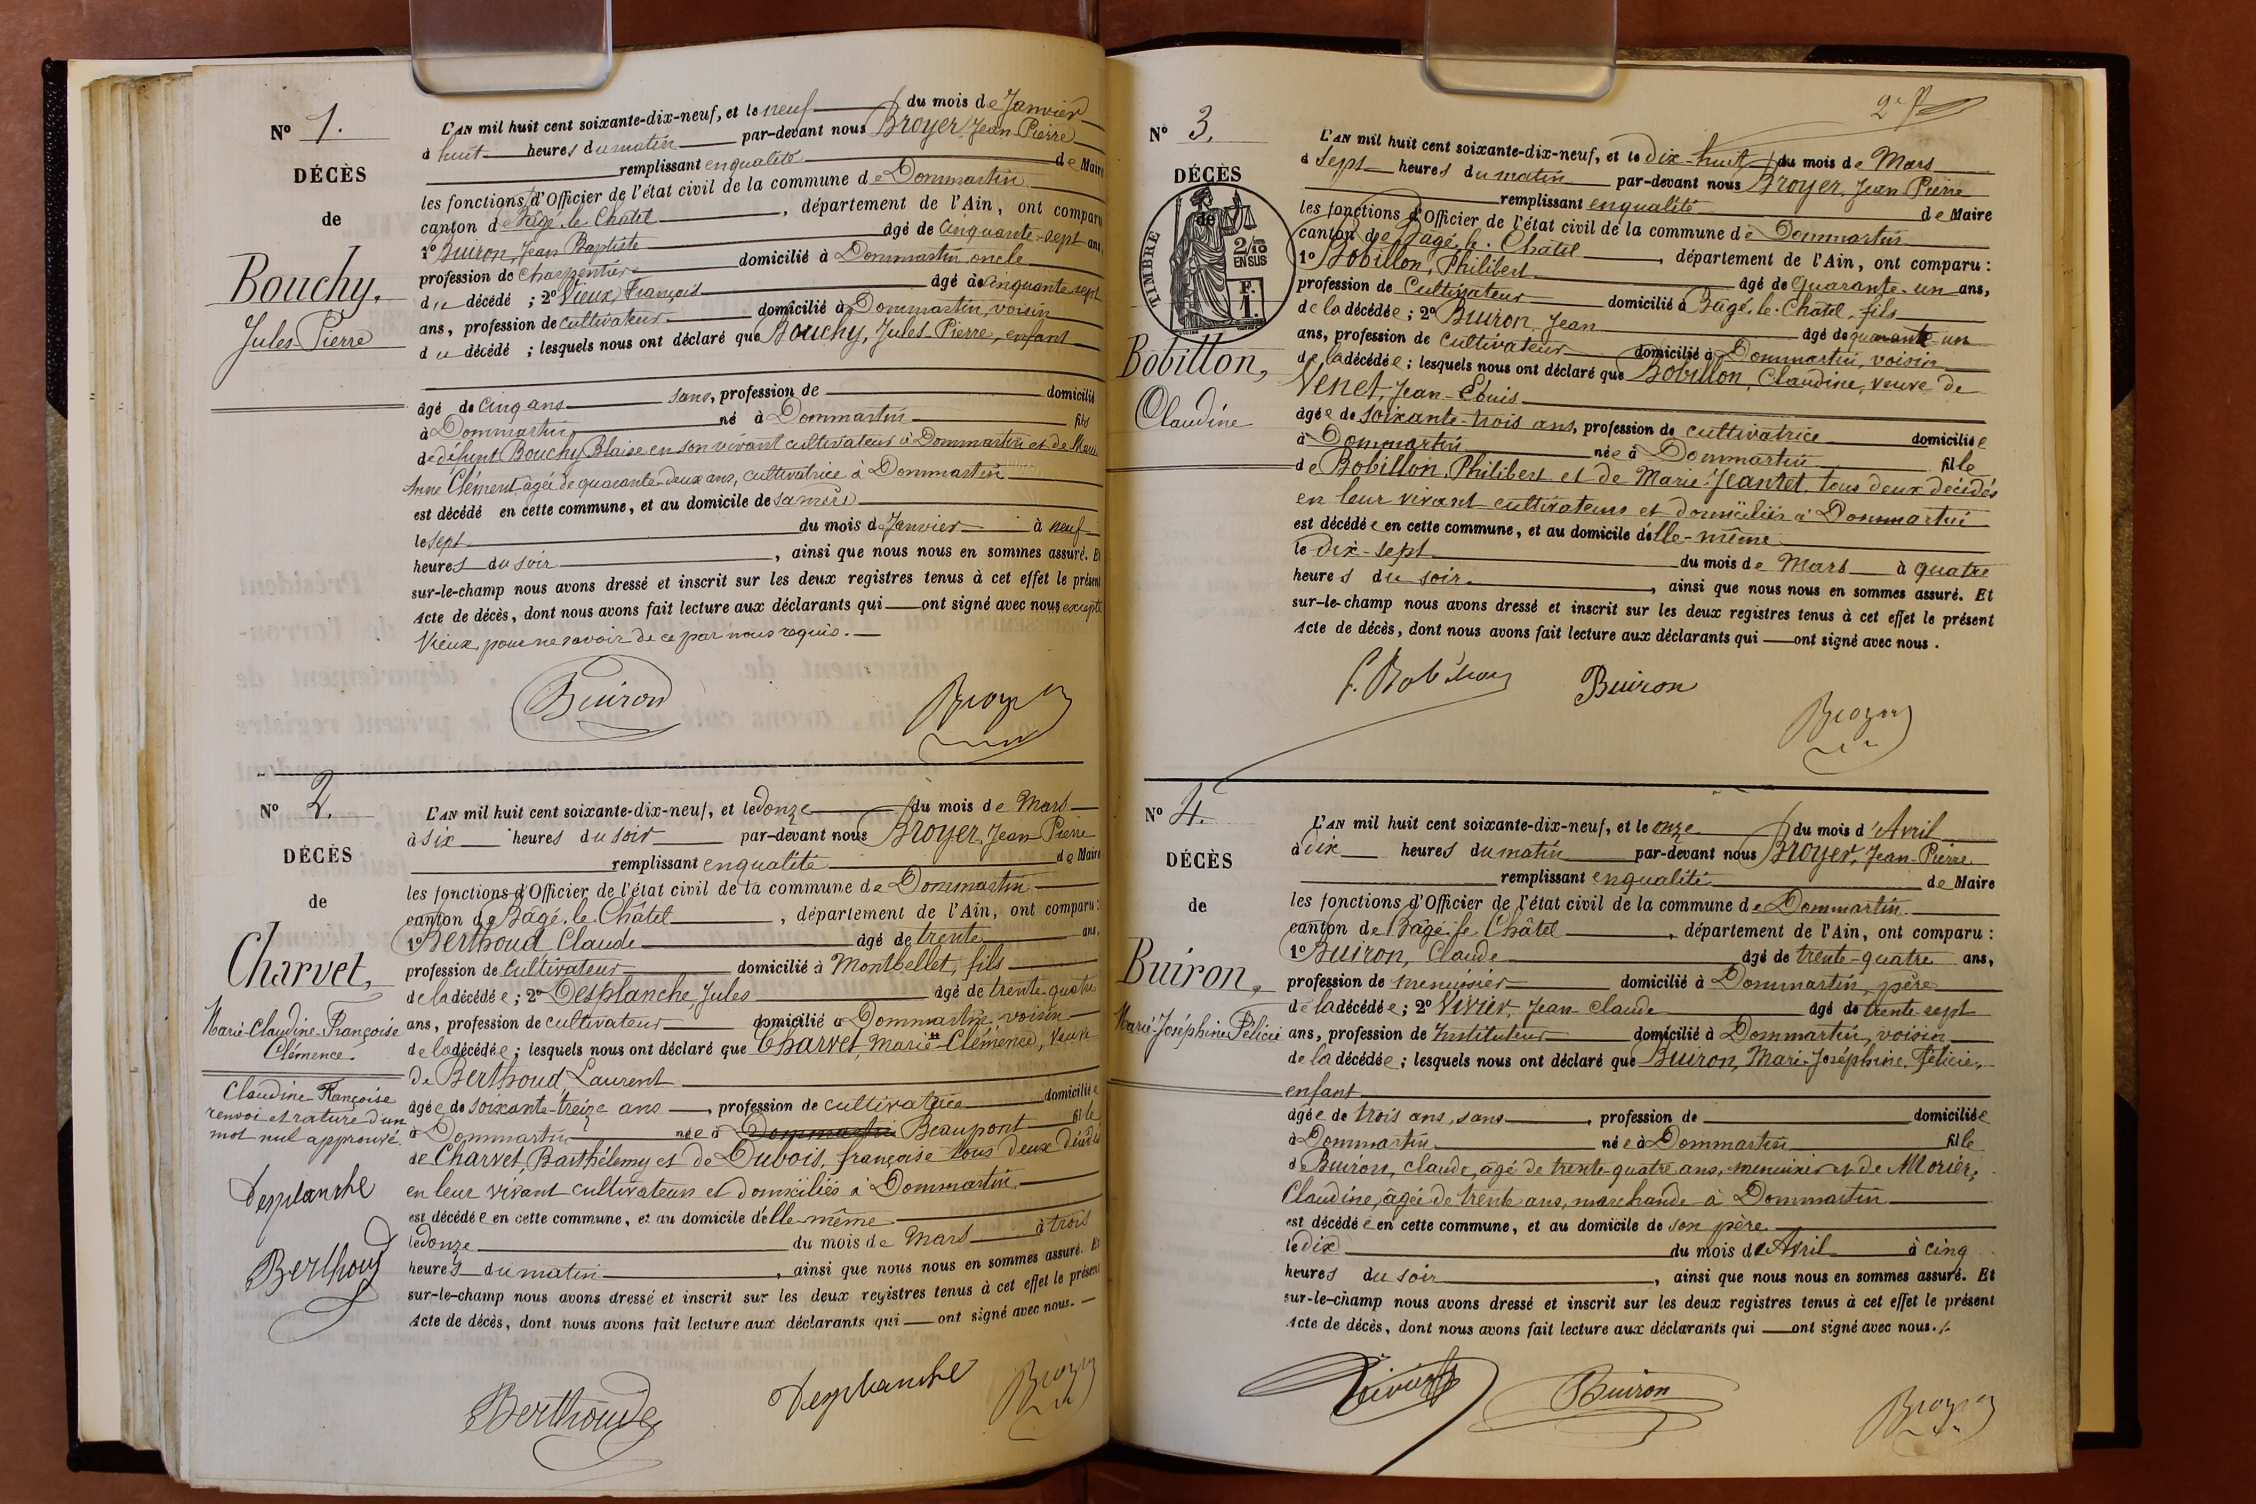 Nº 1.
DÉCÈS
de
Bouchy,
Jules Pierre
L'AN mil huit cent soixante-dix-neuf, et le neuf du mois de Janvier
à huit heures du matin par-devant nous Broyer, Jean Pierre
remplissant en qualité de Maire
les fonctions d'Officier de l'état civil de la commune de Dommartin
canton de Bâgé-le-Châtel, département de l'Ain, ont comparu
1º Buiron, Jean Baptiste âgé de Cinquante-sept ans,
profession de charpentier domicilié à Dommartin oncle
du décédé ; 2º Vieux, François âgé de cinquante sept
ans, profession de cultivateur domicilié à Dommartin, voisin
du décédé ; lesquels nous ont déclaré que Bouchy, Jules-Pierre, enfant
âgé de cinq ans sans, profession de domicilié
à Dommartin né à Dommartin fils
de défunt Bouchy Blaise en son vivant cultivateur à Dommartin et de Marie
Anne Clément, agée de quarante-deux ans, cultivatrice à Dommartin
est décédé en cette commune, et au domicile de sa mère
le sept du mois de Janvier à neuf
heures du soir, ainsi que nous nous en sommes assuré. Et
sur-le-champ nous avons dressé et inscrit sur les deux registres tenus à cet effet le présent
Acte de décès, dont nous avons fait lecture aux déclarants qui — ont signé avec nous excepté
Vieux, pour ne savoir de ce par nous requis. —
Buiron Broyer
Nº 2.
DÉCÈS
de
Charvet,
Marie-Claudine-Françoise
Clémence.
Claudine Françoise
renvoi et rature d'un
mot nul approuvé.
Desplanche
Berthoud
L'AN mil huit cent soixante-dix-neuf, et le donze du mois de Mars
à six heures du soir par-devant nous Broyer, Jean Pierre
remplissant en qualité de Maire
les fonctions d'Officier de l'état civil de la commune de Dommartin
canton de Bâgé-le-Châtel, département de l'Ain, ont comparu :
1º Berthoud Claude âgé de trente ans,
profession de Cultivateur domicilié à Montbellet, fils
de la décédée ; 2º Desplanche, Jules âgé de trente-quatre
ans, profession de cultivateur domicilié à Dommartin, voisin
de la décédée ; lesquels nous ont déclaré que Charvet, Marie-Clémence, veuve
de Berthoud, Laurent
âgée de soixante-treize ans, profession de cultivatrice domiciliée
à Dommartin née à Dommartin Beaupont fille
de Charvet, Barthélemy et de Dubois, françoise tous deux décédés
en leur vivant cultivateurs et domiciliés à Dommartin
est décédée en cette commune, et au domicile d'elle-même
le donze du mois de Mars à trois
heures du matin, ainsi que nous nous en sommes assuré. Et
sur-le-champ nous avons dressé et inscrit sur les deux registres tenus à cet effet le présent
Acte de décès, dont nous avons fait lecture aux déclarants qui — ont signé avec nous. —
Berthoud Desplanche Broyer
2e
Nº 3.
DÉCÈS
de
TIMBRE
2/10
EN SUS
F.
1.
Bobillon,
Claudine
L'AN mil huit cent soixante-dix-neuf, et le dix-huit du mois de Mars
à sept heures du matin par-devant nous Broyer, Jean Pierre
remplissant en qualité de Maire
les fonctions d'Officier de l'état civil de la commune de Dommartin
canton de Bâgé-le-Châtel, département de l'Ain, ont comparu :
1º Bobillon, Philibert âgé de Quarante-un ans,
profession de Cultivateur domicilié à Bâgé-le-Châtel, fils
de la décédée ; 2º Buiron, Jean âgé de quarante-un
ans, profession de cultivateur domicilié à Dommartin, voisin
de la décédée ; lesquels nous ont déclaré que Bobillon, Claudine, veuve de
Venet, Jean-Louis
âgée de soixante-trois ans, profession de cultivatrice domiciliée
à Dommartin née à Dommartin fille
de Bobillon, Philibert et de Marie Jeantet, tous deux décédés
en leur vivant cultivateurs et domiciliés à Dommartin
est décédée en cette commune, et au domicile d'elle-même
le Dix-sept du mois de Mars à quatre
heures du soir, ainsi que nous nous en sommes assuré. Et
sur-le-champ nous avons dressé et inscrit sur les deux registres tenus à cet effet le présent
Acte de décès, dont nous avons fait lecture aux déclarants qui — ont signé avec nous.
Bobillon Buiron
Broyer
Nº 4.
DÉCÈS
de
Buiron,
Marie-Joséphine Félicie
L'AN mil huit cent soixante-dix-neuf, et le onze du mois d'Avril
à dix heures du matin par-devant nous Broyer, Jean-Pierre
remplissant en qualité de Maire
les fonctions d'Officier de l'état civil de la commune de Dommartin
canton de Bâgé-le-Châtel, département de l'Ain, ont comparu :
1º Buiron, Claude âgé de trente-quatre ans,
profession de menuisier domicilié à Dommartin, père
de la décédée ; 2º Vivier, Jean Claude âgé de trente-sept
ans, profession de Instituteur domicilié à Dommartin, voisin
de la décédée ; lesquels nous ont déclaré que Buiron, Marie-Joséphine, Félicie,
enfant
âgée de trois ans, sans, profession de domiciliée
à Dommartin née à Dommartin fille
de Buiron, claude, agé de trente-quatre ans, menuisier et de Morier,
Claudine, âgée de trente ans, marchande à Dommartin
est décédée en cette commune, et au domicile de son père
le dix du mois de Avril à cinq
heures du soir, ainsi que nous nous en sommes assuré. Et
sur-le-champ nous avons dressé et inscrit sur les deux registres tenus à cet effet le présent
Acte de décès, dont nous avons fait lecture aux déclarants qui — ont signé avec nous.
Vivier Buiron Broyer